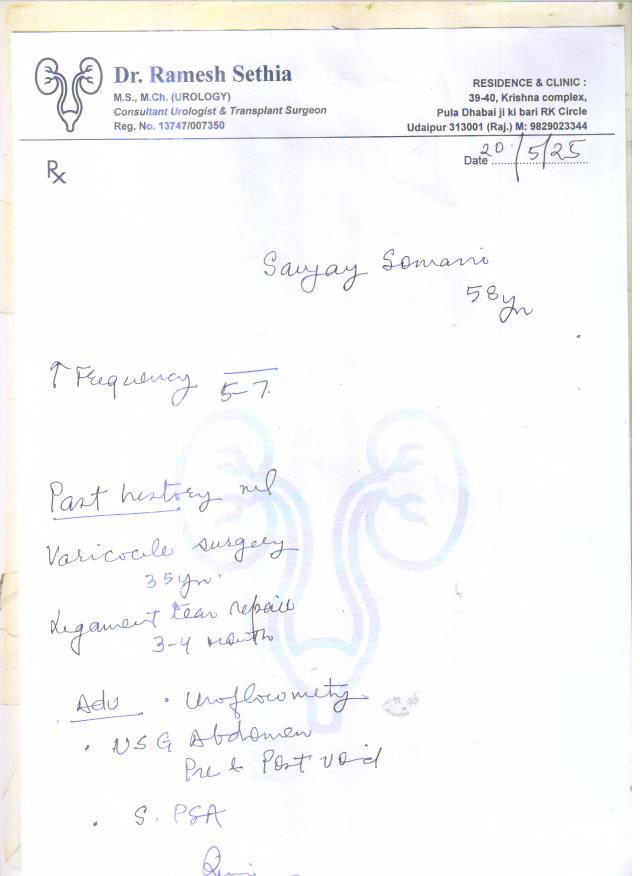 Dr. Ramesh Sethia
M.S., M.Ch. (UROLOGY)
Consultant Urologist & Transplant Surgeon
Reg. No. 13747/007350
RESIDENCE & CLINIC :
39-40, Krishna complex,
Pula Dhabai ji ki bari RK Circle
Udaipur 313001 (Raj.) M: 9829023344
Date 20/5/25
Rx
Sanjay Somani
58yr
↑ Frequency 5-7.
Past history nil
Varicocele surgery
35yr.
Ligament tear repair
3-4 month
Adv • Uroflowmetry
• USG Abdomen
Pre & Post void
• S. PSA